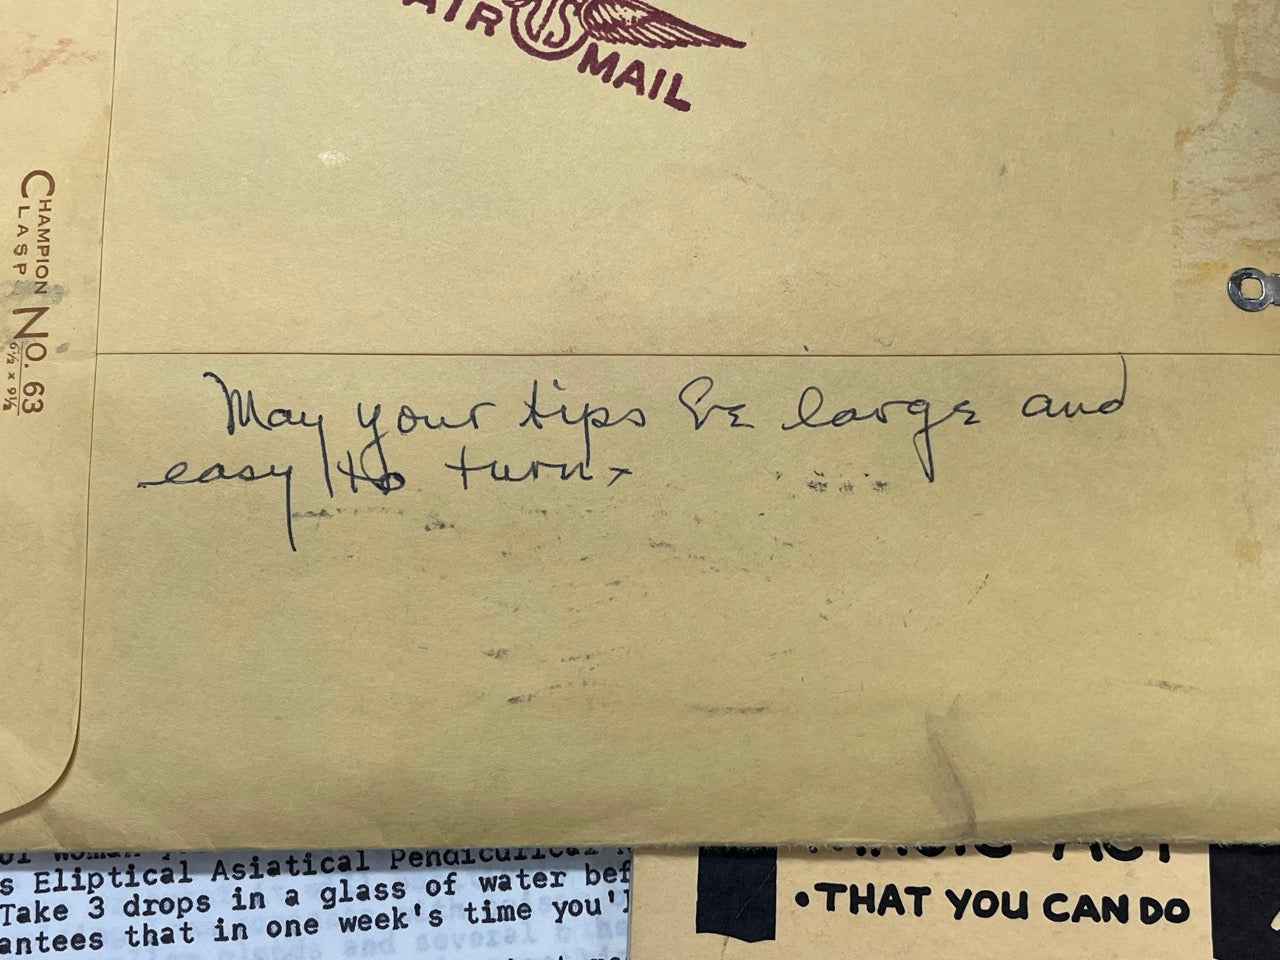 AIR US MAIL
CHAMPION
CLASP
No. 63
6½ x 9½
May your tips be large and
easy to turn.
s Eliptical Asiatical Pendicutical
Take 3 drops in a glass of water bef
antees that in one week's time you'l
MAGIC ACT
•THAT YOU CAN DO